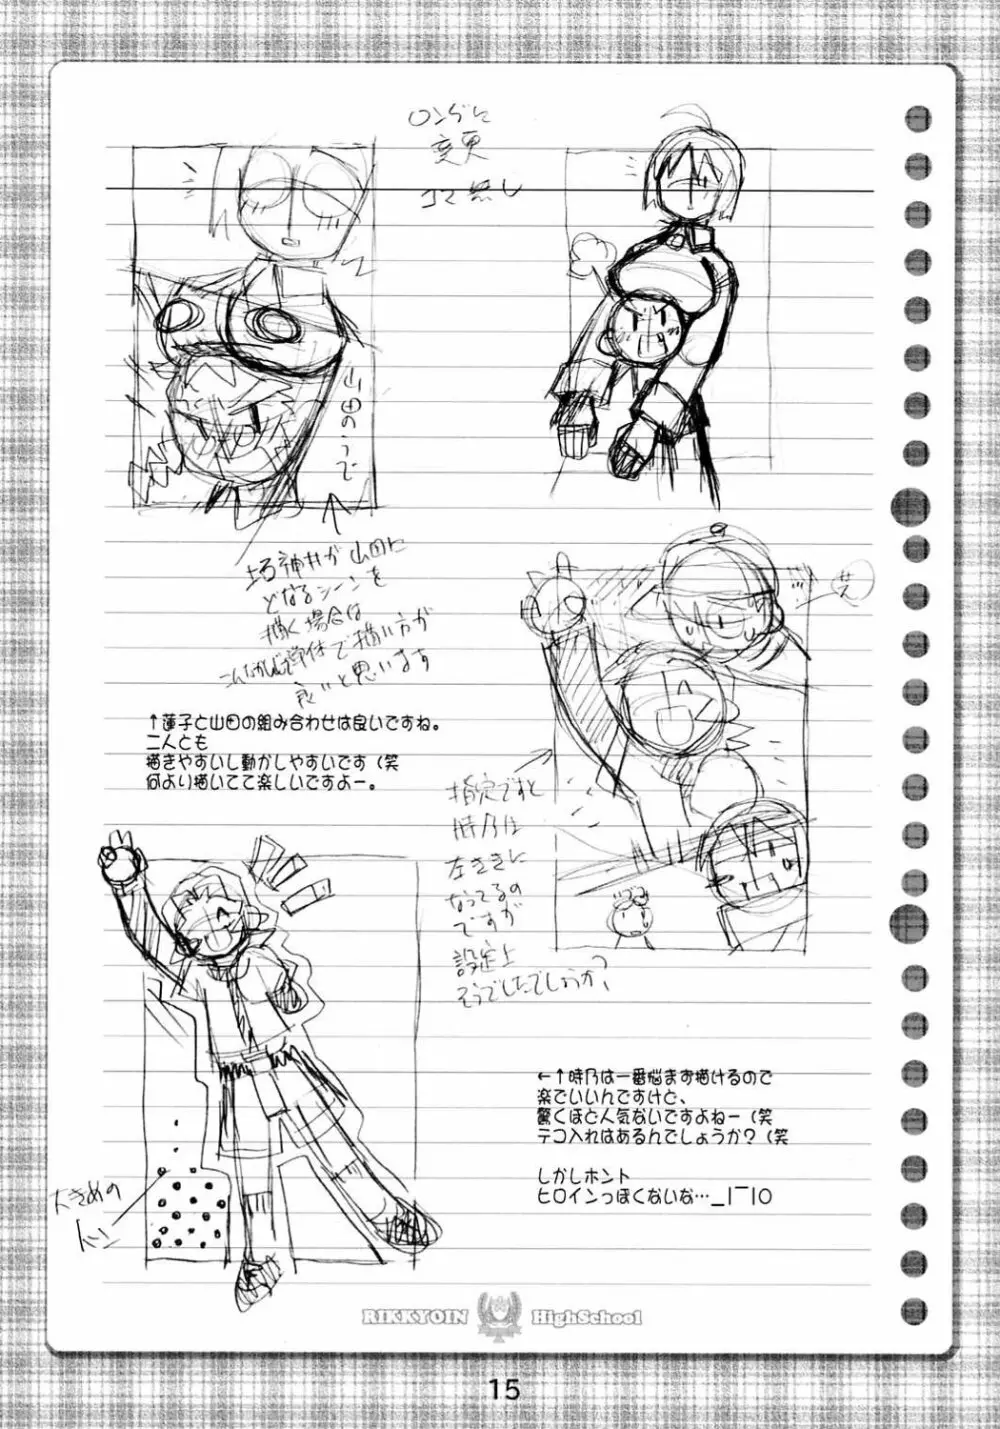 ロングに
変更
コマ無し
山田のうで
描く場合は
良いと思います
↑蓮子と山田の組み合わせは良いですね。
二人とも
描きやすいし動かしやすいです（笑
何より描いてて楽しいですよー。
指定ですと
時乃は
左ききに
なってるの
ですが
設定上
そうでしたでしょうか？
←↑時乃は一番悩まず描けるので
楽でいいんですけど、
驚くほど人気ないですよねー（笑
テコ入れはあるんでしょうか？（笑
しかしホント
ヒロインっぽくないな…_|￣|○
大きめの
トーン
RIKKYOIN HighSchool
15